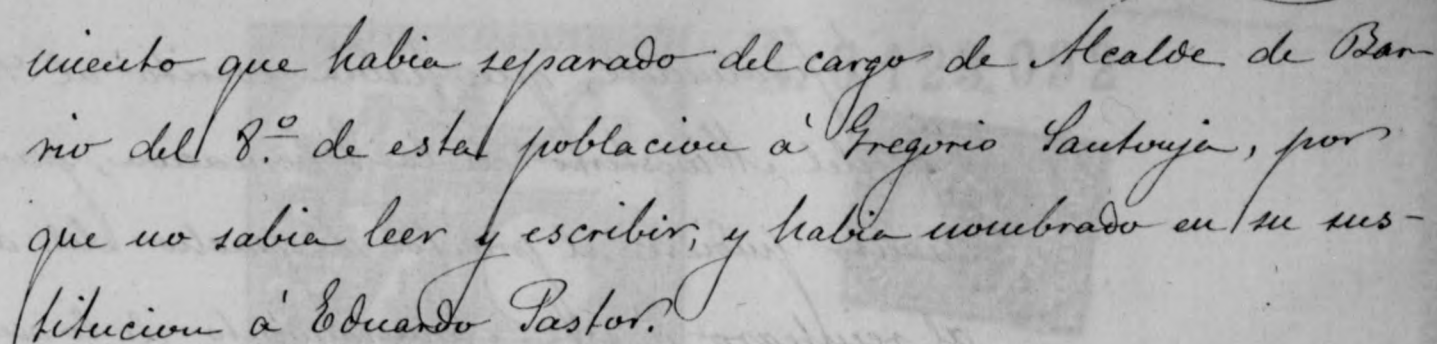 miento que habia separado del cargo de Alcalde de Bar-
rio del 8.º de esta poblacion á Gregorio Santonja, por
que no sabia leer y escribir, y habia nombrado en su sus-
titucion á Eduardo Pastor.